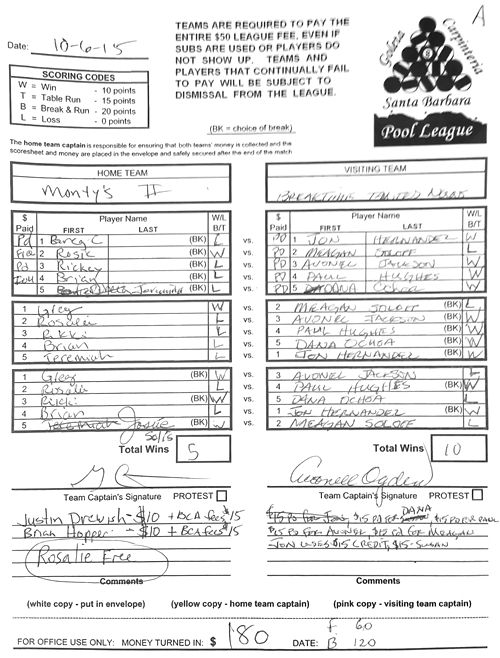 A
Date: 10-6-15
TEAMS ARE REQUIRED TO PAY THE
ENTIRE $50 LEAGUE FEE, EVEN IF
SUBS ARE USED OR PLAYERS DO
NOT SHOW UP. TEAMS AND
PLAYERS THAT CONTINUALLY FAIL
TO PAY WILL BE SUBJECT TO
DISMISSAL FROM THE LEAGUE.
Goleta Carpinteria
Santa Barbara
Pool League
SCORING CODES
W = Win - 10 points
T = Table Run - 15 points
B = Break & Run - 20 points
L = Loss - 0 points
(BK = choice of break)
The home team captain is responsible for ensuring that both teams' money is collected and the
scoresheet and money are placed in the envelope and safely secured after the end of the match
HOME TEAM
Monty's II
VISITING TEAM
$ Paid Player Name FIRST LAST W/L B/T
Pd 1 (BK) L
2 Rosie W
Pd 3 Rickey (BK) L
4 Brian (BK) L
5 Jeremiah L
1 Greg W
2 Rosalie L
3 Rikki L
4 Brian L
5 Jeremiah (BK) L
1 Greg (BK) W
2 Rosalie L
3 Rikki (BK) W
4 Brian L
5 Josie W
Total Wins 5
$ Paid Player Name FIRST LAST W/L B/T
vs. PD 1 JON HERNANDEZ W
vs. PD 2 MEAGAN SOLOFF (BK) L
vs. PD 3 AVONEL JACKSON W
vs. PD 4 PAUL HUGHES W
vs. PD 5 DANA OCHOA (BK) W
vs. 2 MEAGAN SOLOFF (BK) L
vs. 3 AVONEL JACKSON (BK) W
vs. 4 PAUL HUGHES (BK) W
vs. 5 DANA OCHOA (BK) W
vs. 1 JON HERNANDEZ W
vs. 3 AVONEL JACKSON L
vs. 4 PAUL HUGHES (BK) W
vs. 5 DANA OCHOA L
vs. 1 JON HERNANDEZ (BK) W
vs. 2 MEAGAN SOLOFF (BK) L
Total Wins 10
Team Captain's Signature PROTEST
Brian Hopper - $10 + BCA fees $15
Rosalie Free
Comments
Avonell Ogden
Team Captain's Signature PROTEST
DANA
$15 PD FOR AVONEL, $15 PD FOR MEAGAN
JON USES $15 CREDIT, $15 - SUSAN
Comments
(white copy - put in envelope) (yellow copy - home team captain) (pink copy - visiting team captain)
FOR OFFICE USE ONLY: MONEY TURNED IN: $ 180 DATE: F 60
B 120